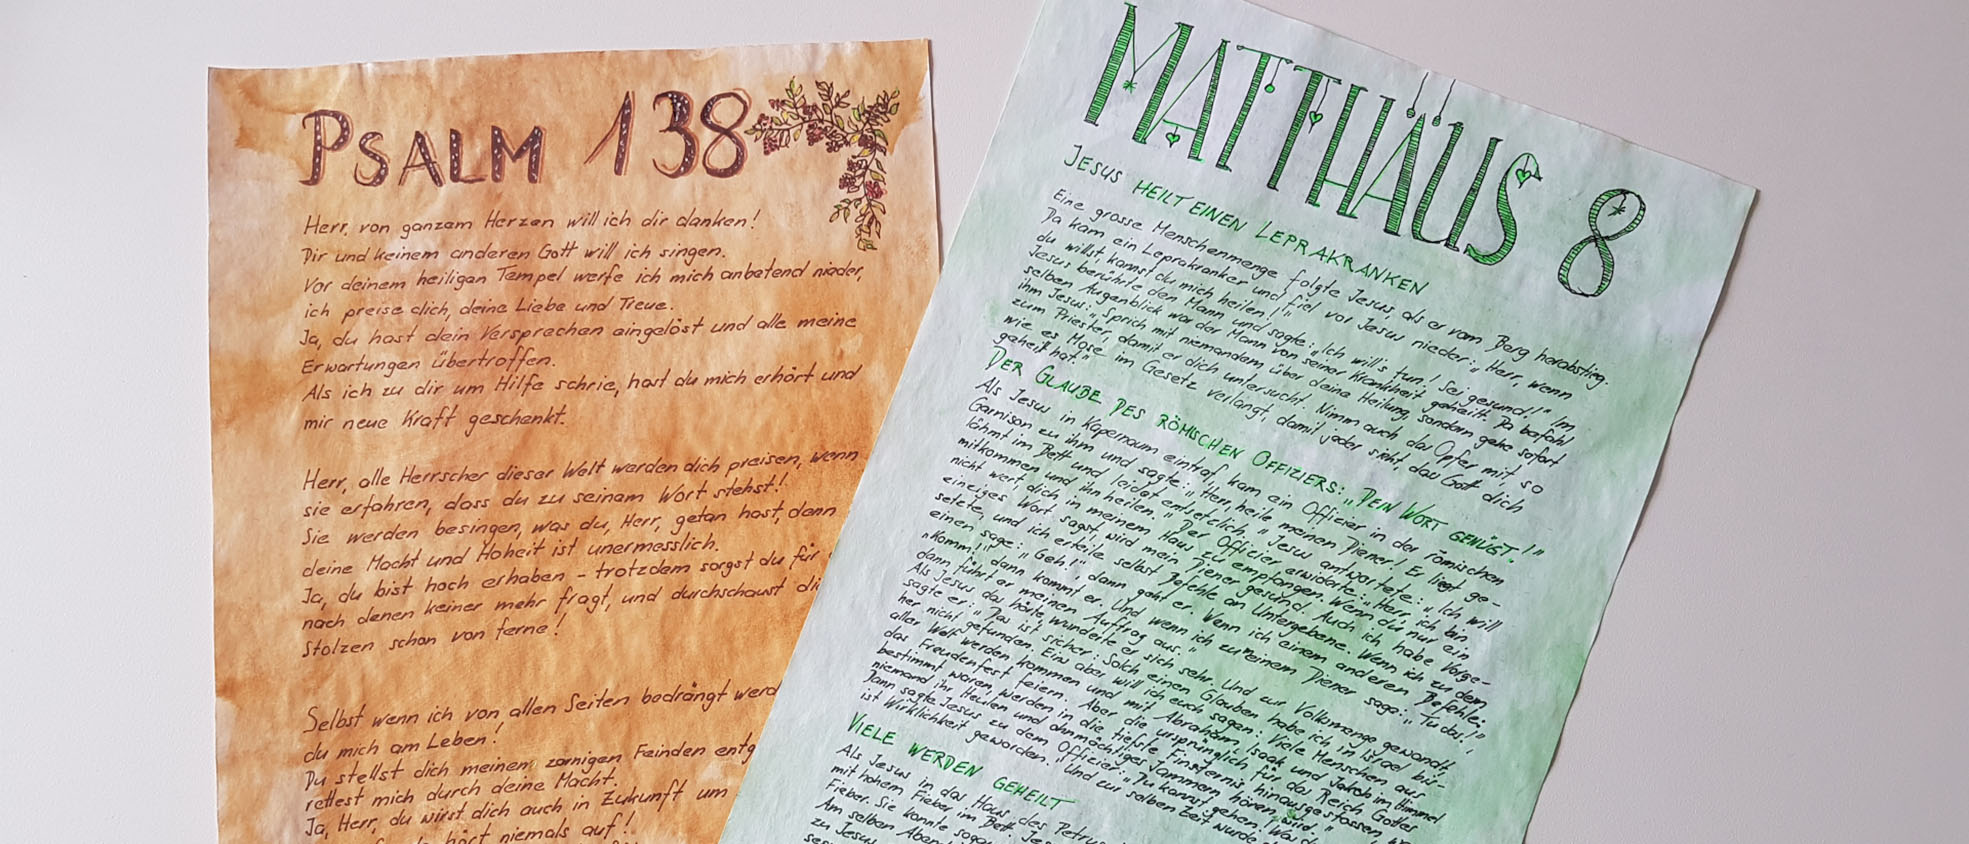 PSALM 138
Herr, von ganzem Herzen will ich dir danken!
Dir und keinem anderen Gott will ich singen.
Vor deinem heiligen Tempel werfe ich mich anbetend nieder,
ich preise dich, deine Liebe und Treue.
Ja, du hast dein Versprechen eingelöst und alle meine
Erwartungen übertroffen.
Als ich zu dir um Hilfe schrie, hast du mich erhört und
mir neue Kraft geschenkt.
Herr, alle Herrscher dieser Welt werden dich preisen, wenn
sie erfahren, dass du zu seinem Wort stehst!
Sie werden besingen, was du, Herr, getan hast, denn
deine Macht und Hoheit ist unermesslich.
Ja, du bist hoch erhaben - trotzdem sorgst du für
nach denen keiner mehr fragt, und durchschaust die
Stolzen schon von ferne!
Selbst wenn ich von allen Seiten bedrängt werd
du mich am Leben!
Du stellst dich meinem zornigen Feinden entg
rettest mich durch deine Macht.
Ja, Herr, du wirst dich auch in Zukunft um
hört niemals auf!
MATTHÄUS 8
JESUS HEILT EINEN LEPRAKRANKEN
Eine grosse Menschenmenge folgte Jesus, als er vom Berg herabstieg.
Da kam ein Leprakranker und fiel vor Jesus nieder: „Herr, wenn
du willst, kannst du mich heilen!"
Jesus berührte den Mann und sagte: „Ich will's tun! Sei gesund!" Im
selben Augenblick war der Mann von seiner Krankheit geheilt. Da befahl
ihm Jesus: „Sprich mit niemandem über deine Heilung, sondern gehe sofort
zum Priester, damit er dich untersucht. Nimm auch das Opfer mit, so
wie es Mose im Gesetz verlangt, damit jeder sieht, dass Gott dich
geheilt hat."
DER GLAUBE DES RÖMISCHEN OFFIZIERS: „DEIN WORT GENÜGT!"
Als Jesus in Kapernaum eintraf, kam ein Offizier in der römischen
Garnison zu ihm und sagte: „Herr, heile meinen Diener! Er liegt ge-
lähmt im Bett und leidet entsetzlich." Jesus antwortete: „Ich will
mitkommen und ihn heilen." Der Offizier erwiderte: „Herr, ich bin
nicht wert, dich in meinem Haus zu empfangen. Wenn du nur ein
einziges Wort sagst, wird mein Diener gesund. Auch ich habe Vorge-
setzte, und ich erteile selbst Befehle an Untergebene. Wenn ich zu dem
einen sage: „Geh!" dann geht er. Wenn ich einem anderen Befehle:
„Komm!", dann kommt er. Und wenn ich zu meinem Diener sage: „Tu das!",
dann führt er meinen Auftrag aus."
Als Jesus das hörte, wunderte er sich sehr. Und zur Volksmenge gewandt,
sagte er: „Das ist sicher: Solch einen Glauben habe ich in Israel bis-
her nicht gefunden. Eins aber will ich euch sagen: Viele Menschen aus
aller Welt werden kommen und mit Abraham, Isaak und Jakob im Himmel
das Freudenfest feiern. Aber die ursprünglich für das Reich Gottes
bestimmt waren, werden in die tiefste Finsternis hinausgestossen, wo
niemand ihr Heulen und ohnmächtiges Jammern hören wird."
Dann sagte Jesus zu dem Offizier: „Du kannst gehen! Was d
ist Wirklichkeit geworden." Und zur selben Zeit wurde d
VIELE WERDEN GEHEILT
Als Jesus in das Haus des Petrus
mit hohem Fieber im Bett. Jes
Fieber. Sie konnte soga
Am selben Aben
zu Jesus